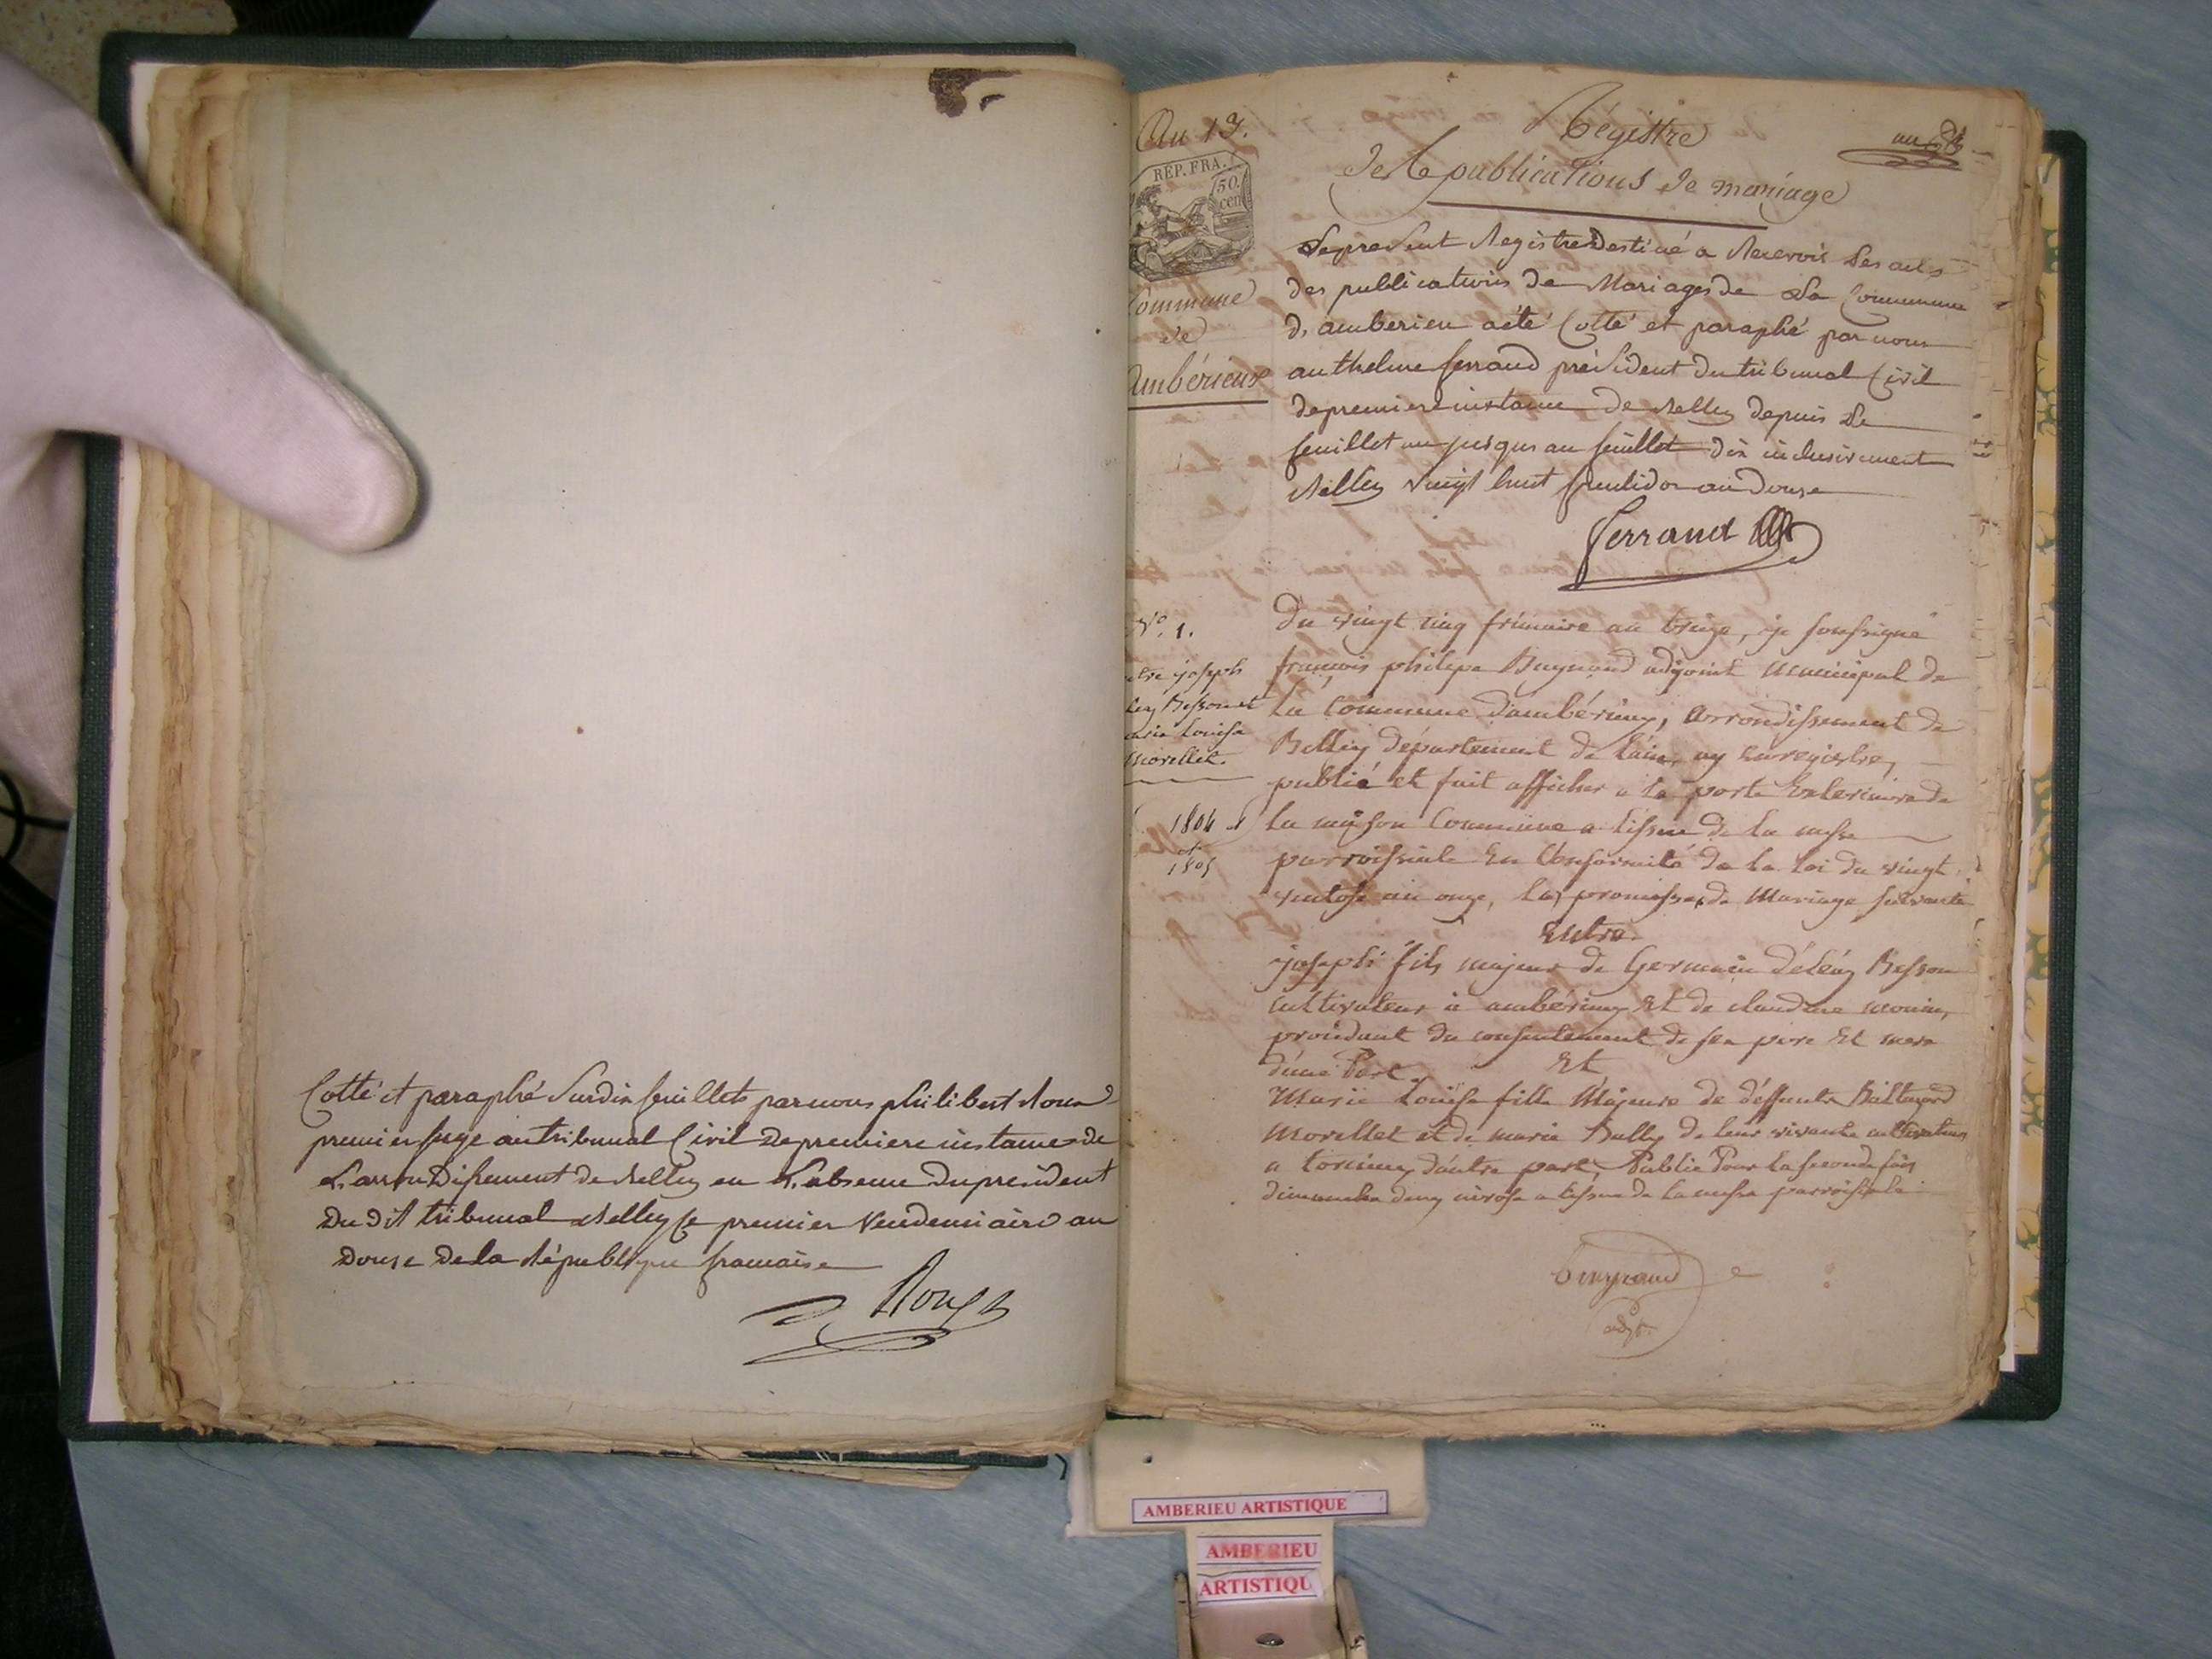 Cotté et paraphé Sur dix feuillets par nous philibert Roux
premier juge au tribunal Civil de premiere instance de
L'arrondissement de Belley en L'absence du president
Du dit tribunal Belley le premier Vendemiaire an
Douze De la République française
An 13.
REP. FRA.
50.
cen
Commune
de
Ambérieux
Régistre
de publications de mariage
Le present Registre Destiné a Recevoir Les actes
des publications de Mariages de La Commune
d'amberieu a été Cotté et paraphé par nous
anthelme ferrand président du tribunal Civil
de premiere instance de Belley depuis Le
feuillet un jusques au feuillet dix inclusivement
Belley vingt huit fructidor an Douze
Ferrand
N°. 1.
entre joseph
Besson et
marie Louise
Morellet.
1804
et
1805
Du vingt cinq frimaire an treize, je soussigné
françois philipe adjoint municipal de
La Commune d'ambérieux, arrondissement de
Belley département de l'ain, ay enregistré,
publié et fait afficher a la porte Exterieure de
la maison Commune a lissue de la messe
parroissiale En Conformité de la Loi du vingt
ventose an onze, la promesse de Mariage suivante
Entre
joseph fils majeur de Germain Besson
cultivateur a ambérieux Et de claudine monin,
procédant du consentement de ses pere Et mere
d'une Part. Et
Marie Louise fille Majeure de deffunts Baltazard
Morellet et de marie Bully de leur vivant cultivateurs
a torcieux d'autre part, Publié Pour la seconde fois
dimanche deux nivose a lissue de la messe parroissiale
adjt.
AMBERIEU ARTISTIQUE
AMBERIEU
ARTISTIQU